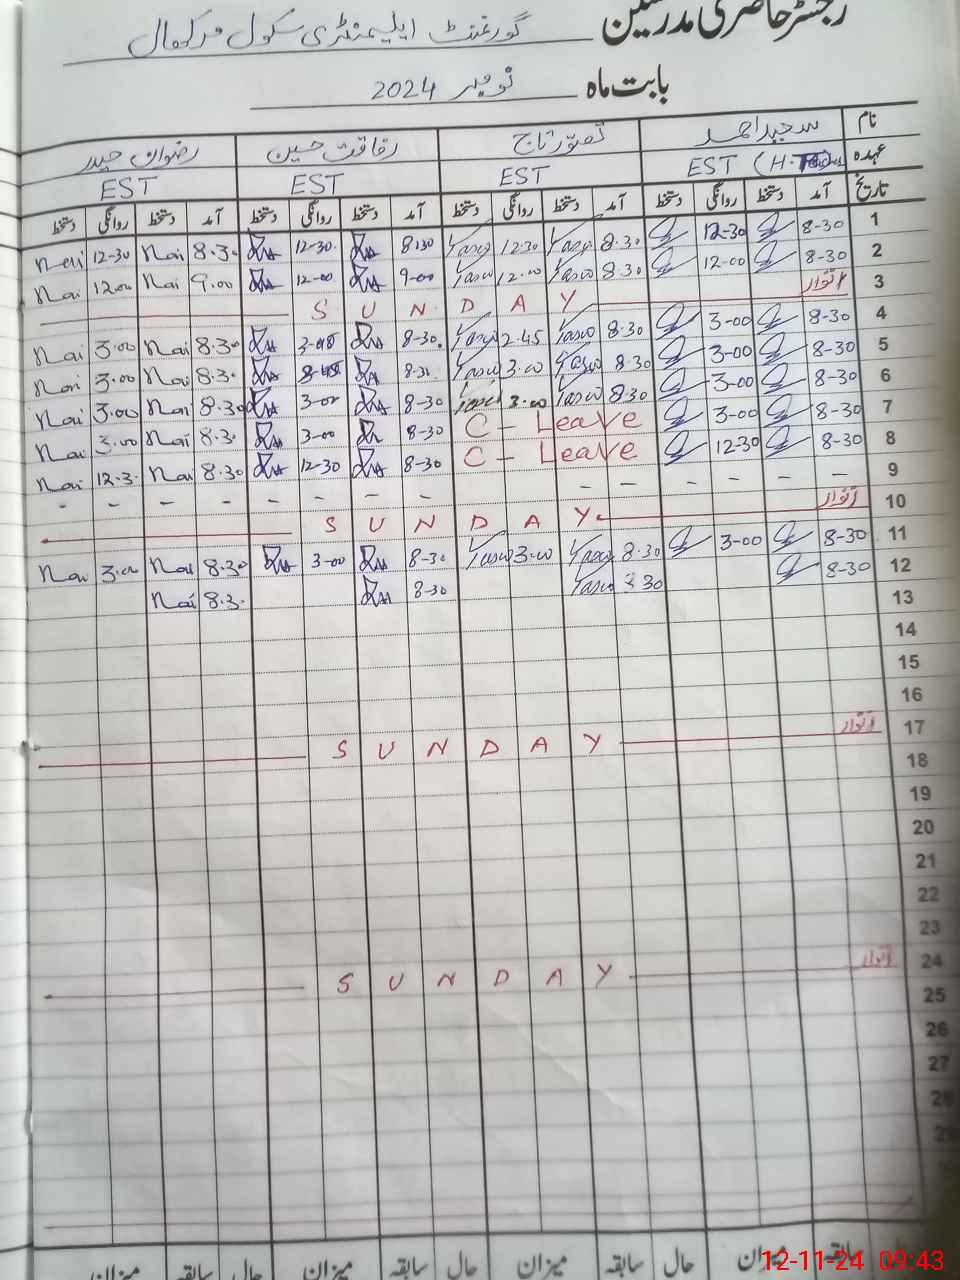 رجسٹر حاضری مدرسین گورنمنٹ ایلیمنٹری سکول
بابت ماہ نومبر 2024
نام سجید احمد تصور تاج رفاقت حسین رضوان حیدر
عہدہ EST (H. EST EST EST
تاریخ آمد دستخط روانگی دستخط آمد دستخط روانگی دستخط آمد دستخط روانگی دستخط آمد دستخط روانگی دستخط
1 8-30 12-30 8.30 12.30 8:30 12-30 8.30 Nai 12-30
2 8-30 12-00 8.30 12.00 9-00 12-00 9.00 Nai 12.00 Nai
3 اتوار SUNDAY
4 8-30 3-00 8.30 2.45 8-30 8.30 Nai 3.00 Nai
5 8-30 3-00 8.30 3.00 8.3. Nai 3.00 Nai
6 8-30 3-00 8.30 3.00 8-30 3-00 8.30 Nai 3.00 Nai
7 8-30 3-00 C - Leave 8-30 3-00 8.3. Nai 3.00 Nai
8 8-30 12-30 C - Leave 8-30 12-30 8.30 Nai 12.3. Nai
9 - - - - - - - - - - - -
10 اتوار SUNDAY
11 8-30 3-00 8.30 3.00 8-30 3-00 8.30 Nai 3.0 Nai
12 8-30 8.30 8-30 8.3. Nai
13
14
15
16
17 اتوار SUNDAY
18
19
20
21
22
23
24 اتوار SUNDAY
25
26
27
28
29
حال سابقہ میزان حال سابقہ میزان حال سابقہ میزان حال سابقہ میزان
12-11-24 09:43